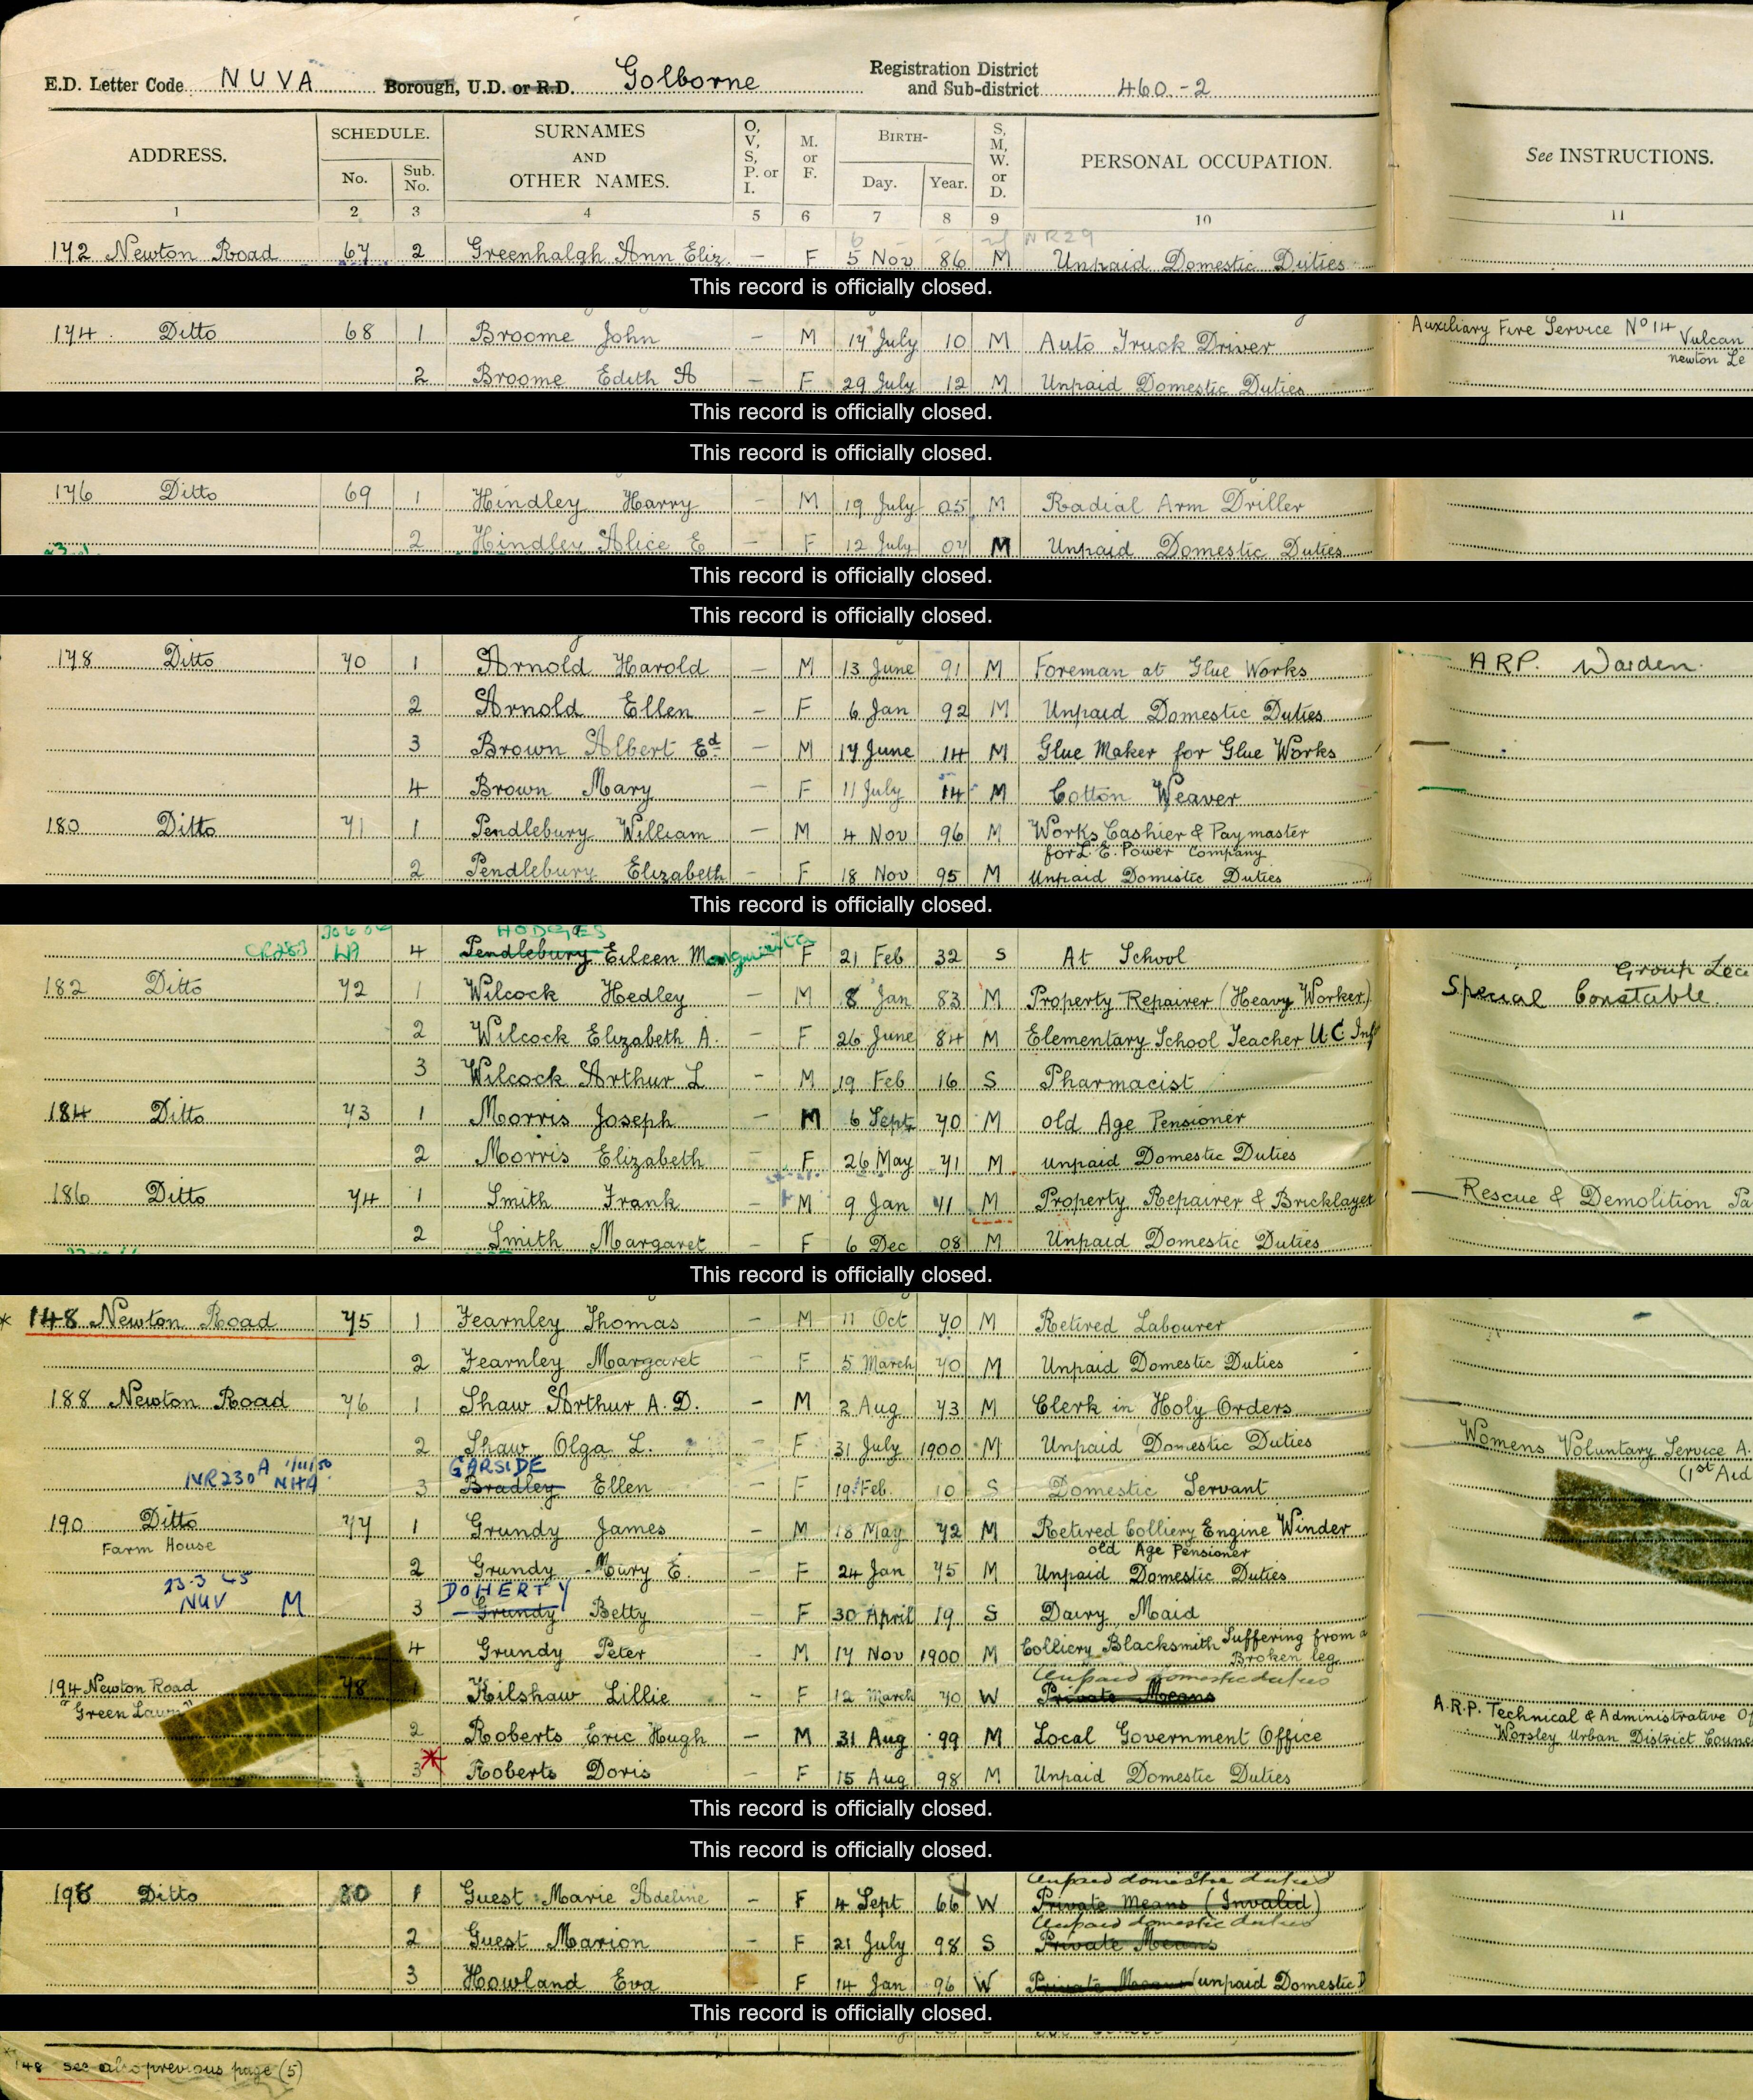 E.D. Letter Code NUVA Borough, U.D. or R.D. Golborne Registration District and Sub-district 460-2
ADDRESS. SCHEDULE. No. Sub. No. SURNAMES AND OTHER NAMES. O, V, S, P. or I. M. or F. BIRTH- Day. Year. S, M, W. or D. PERSONAL OCCUPATION. See INSTRUCTIONS.
1 2 3 4 5 6 7 8 9 10 11
NR29
172 Newton Road 67 2 Greenhalgh Ann Eliz. — F 5 Nov 86 M Unpaid Domestic Duties
This record is officially closed.
174 Ditto 68 1 Broome John — M 17 July 10 M Auto Truck Driver Auxiliary Fire Service No 14 Vulcan
newton Le
2 Broome Edith A — F 29 July 12 M Unpaid Domestic Duties
This record is officially closed.
This record is officially closed.
176 Ditto 69 1 Hindley Harry — M 19 July 05 M Radial Arm Driller
2 Hindley Alice E — F 12 July 07 M Unpaid Domestic Duties
This record is officially closed.
This record is officially closed.
178 Ditto 70 1 Arnold Harold — M 13 June 91 M Foreman at Glue Works ARP. Warden.
2 Arnold Ellen — F 6 Jan 92 M Unpaid Domestic Duties
3 Brown Albert Ed — M 17 June 14 M Glue Maker for Glue Works
4 Brown Mary F 11 July 14 M Cotton Weaver
180 Ditto 71 1 Pendlebury William — M 4 Nov 96 M Works Cashier & Paymaster
for L. E. Power Company
2 Pendlebury Elizabeth — F 18 Nov 95 M Unpaid Domestic Duties
This record is officially closed.
HODGES
CR283 LA 4 Pendlebury Eileen Marguerite F 21 Feb 32 S At School
182 Ditto 72 1 Wilcock Hedley — M 8 Jan 83 M Property Repairer (Heavy Worker) Special Constable. Group Lea
2 Wilcock Elizabeth A. — F 26 June 84 M Elementary School Teacher U.C. Inf
3 Wilcock Arthur L — M 19 Feb 16 S Pharmacist
184 Ditto 73 1 Morris Joseph — M 6 Sept 70 M old Age Pensioner
2 Morris Elizabeth — F 26 May 71 M unpaid Domestic Duties
186 Ditto 74 1 Smith Frank — M 9 Jan 11 M Property Repairer & Bricklayer Rescue & Demolition Pa
2 Smith Margaret — F 6 Dec 08 M Unpaid Domestic Duties
This record is officially closed.
* 148 Newton Road 75 1 Fearnley Thomas — M 11 Oct 70 M Retired Labourer
2 Fearnley Margaret — F 5 March 70 M Unpaid Domestic Duties
188 Newton Road 76 1 Shaw Arthur A. D. — M 2 Aug 73 M Clerk in Holy Orders
2 Shaw Olga L. — F 31 July 1900 M Unpaid Domestic Duties Womens Voluntary Service A.
(1st Aid
GARSIDE
NR230A 1/11/50 NHA 3 Bradley Ellen — F 19 Feb. 10 S Domestic Servant
190 Ditto 77 1 Grundy James — M 18 May 72 M Retired Colliery Engine Winder
Farm House old Age Pensioner
2 Grundy Mary E. — F 24 Jan 75 M Unpaid Domestic Duties
23.3 45 DOHERTY
NUV M 3 Grundy Betty — F 30 April 19 S Dairy Maid
4 Grundy Peter M 17 Nov 1900 M Colliery Blacksmith Suffering from a
Broken leg
Unpaid domestic duties
194 Newton Road 78 1 Hilshaw Lillie — F 12 March 70 W Private Means
"Green Lawn" A.R.P. Technical & Administrative Of
2 Roberts Eric Hugh — M 31 Aug 99 M Local Government Office Worsley Urban District Counc
3 * Roberts Doris — F 15 Aug 98 M Unpaid Domestic Duties
This record is officially closed.
This record is officially closed.
Unpaid domestic duties
198 Ditto 80 1 Guest Marie Adeline — F 4 Sept 66 W Private Means (Invalid)
Unpaid domestic duties
2 Guest Marion — F 21 July 98 S Private Means
3 Howland Eva F 14 Jan 96 W Private Means (unpaid Domestic D
This record is officially closed.
148 see also previous page (5)